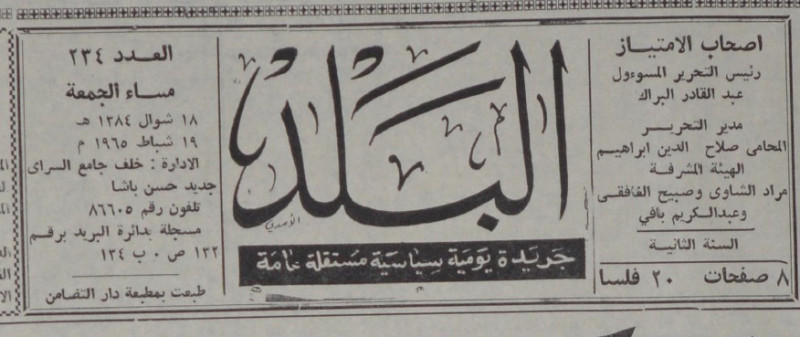 اصحاب الامتياز
رئيس التحرير المسوءول
عبد القادر البراك
مدير التحرير
المحامى صلاح الدين ابراهيم
الهيئة المشرفة
مراد الشاوى وصبيح الغافقى
وعبدالكريم بافي
السنة الثانية
٨ صفحات ٢٠ فلسا
البلد
جريدة يومية سياسية مستقلة عامة
العدد ٢٣٤
مساء الجمعة
١٨ شوال ١٣٨٤ هـ
١٩ شباط ١٩٦٥ م
الادارة : خلف جامع السراى
جديد حسن باشا
تلفون رقم ٨٦٦٠٥
مسجلة بدائرة البريد برقم
١٣٢ ص ٠ ب ١٣٤
طبعت بمطبعة دار التضامن